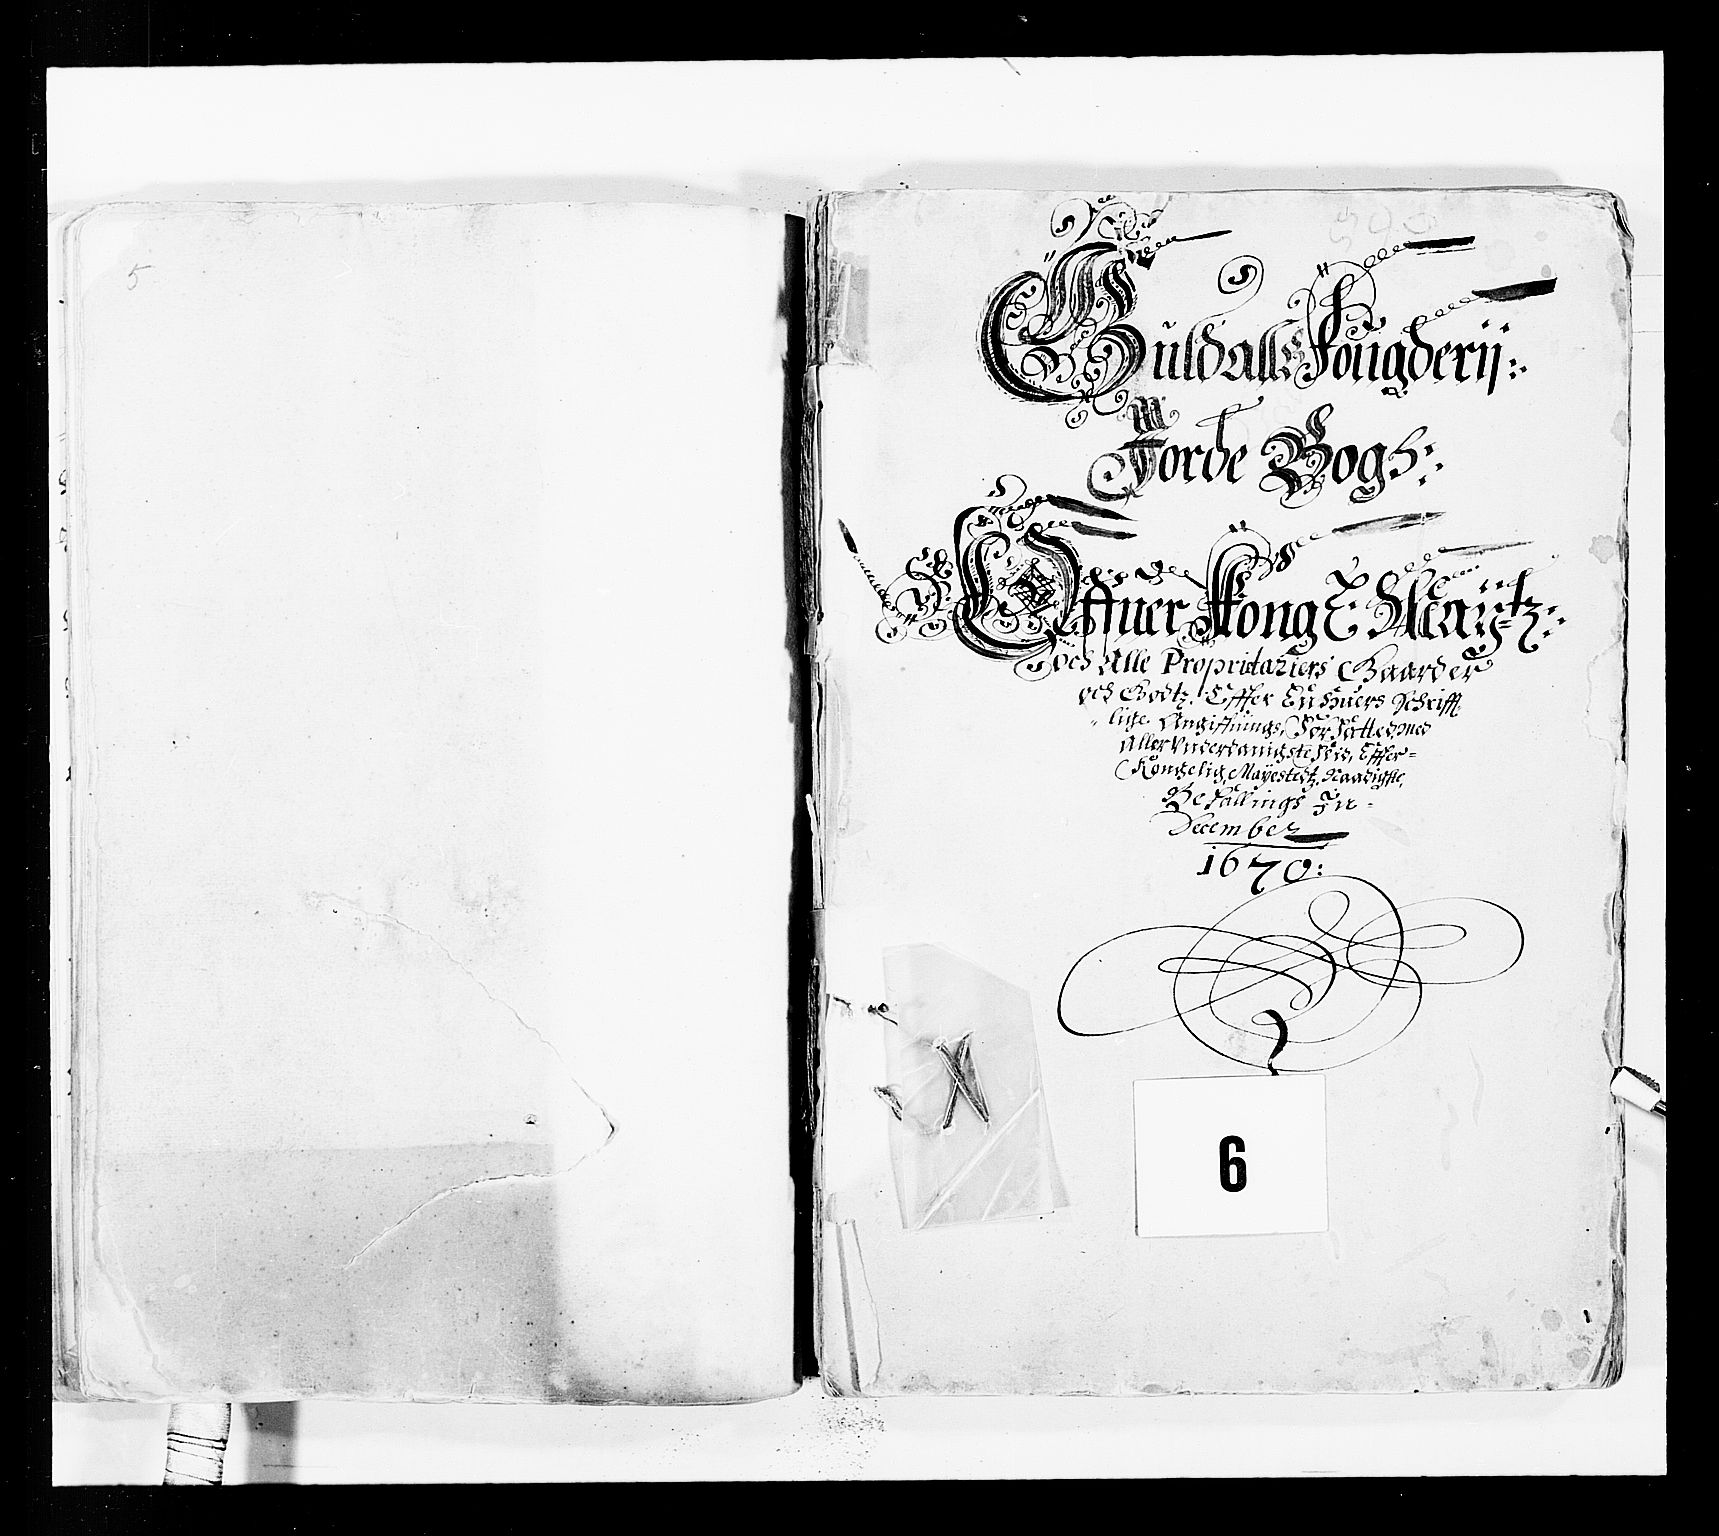 5
Guldalls Fougderij:
Jorde Bogh:
Offuer Kong: Maÿtz:
och Alle Proprietariers Gaarder
och Godtz, Effter Enhuers Schrifft-
lige Angiffuings, Forfatted, med
Aller Underdanigste Vid, Effter
Kongelig, Mayestetz, Naadigste,
Befallings In
December
1670:
6